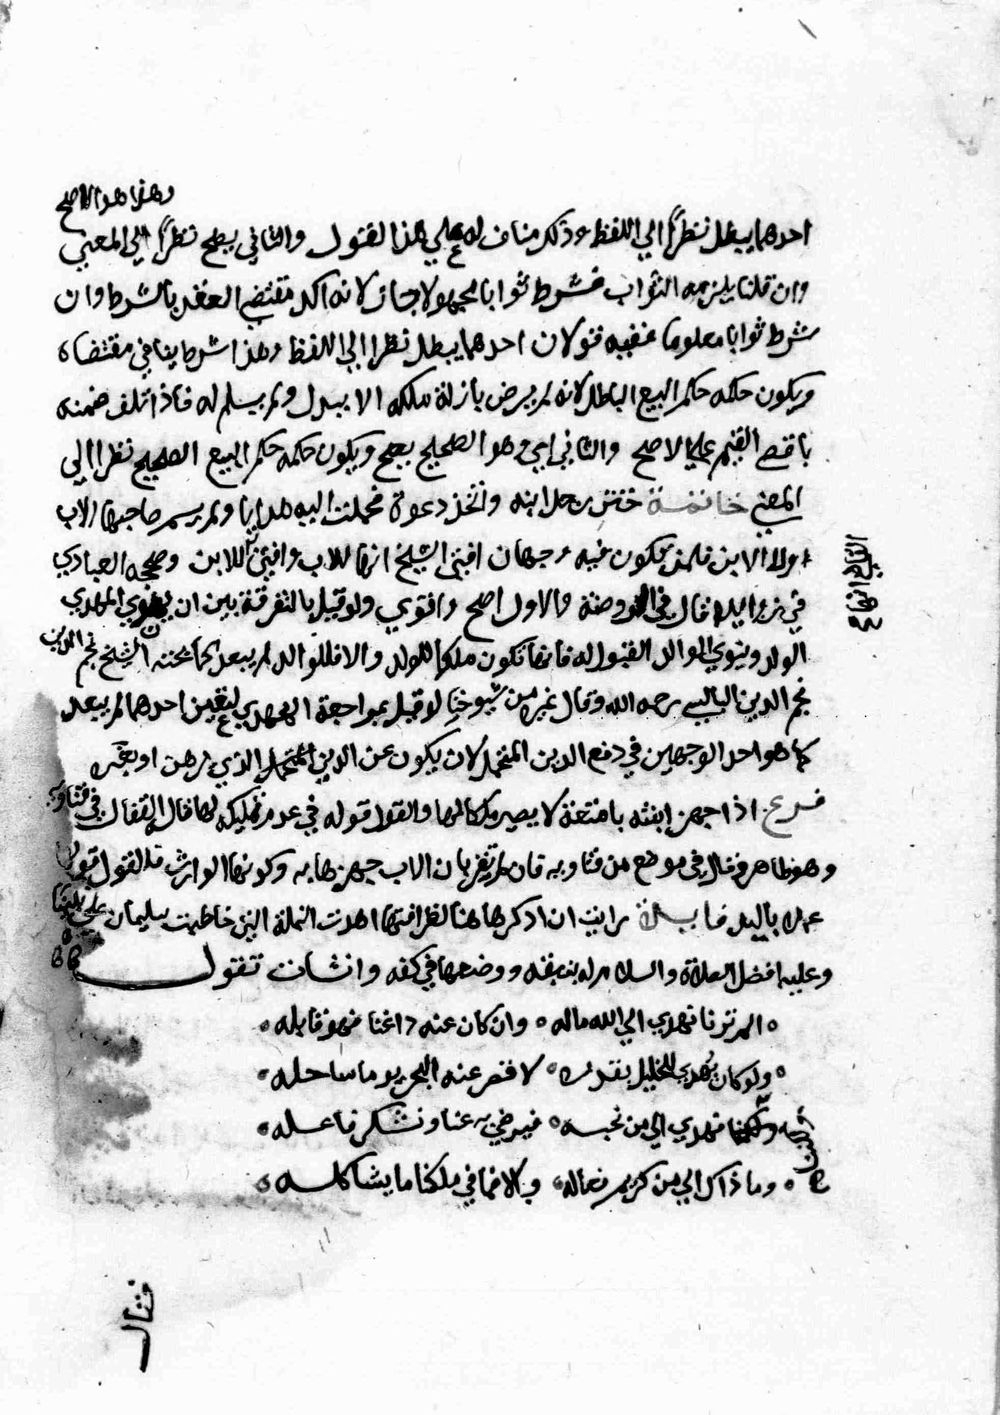 وهذا هو الاصح
احدهما يبطل نظرًا الي اللفظ وذلك مناف له علي هذا القول والثاني يصح نظرًا الي المعني
وان قلنا يلزمه الثواب فشرط ثوابا مجهولا جاز لانه اكد مقتضي العقد بالشرط وان
شرط ثوابا معلوما ففيه قولان احدهما يبطل نظرا الي اللفظ وهذا شرط ينافي مقتضاه
ويكون حكمه حكم البيع الباطل لانه لم يرض بازلة ملكه الا ببدل ولم يسلم له فاذا تلف ضمنه
باقصي القيم علي الاصح والثاني وهو الصحيح يصح ويكون حكمه حكم البيع الصحيح نظرا الي
المعني خاتمة ختن رجل ابنه واتخذ دعوة فحملت اليه هدايا ولم يسم صاحبها الاب
ولا الابن فلمن تكون فيه وجهان افتي الشيخ انها للاب وافتي للابن وصححه العبادي
في قال في الروضة والاول اصح واقوي ولو قيل بالتفرقة بين ان ينوي المهدي
الولد وينوي الوالد القبول له فانها تكون ملكا للولد والا فللوالد لم يبعد كما بحثه الشيخ نجم الدين
نجم الدين البالسي رحمه الله وقال غيره من شيوخنا لو قيل بمراجعة المهدي ليعين احدهما لم يبعد
كما هو احد الوجهين في دفع الدين المتحمل لان يكون عن الدين المتحمل الذي رهن او بغيره
فرع اذا جهز ابنته بامتعة لا يصير ملكا لها والقول قوله في عدم تمليكه لها قال القفال في فتاويه
وهو ظاهر وقال في موضع من فتاويه فان لم تقر بان الاب جهزها به وكونها الوارث فالقول قولها
عملا باليد فايدة رايت ان اذكرها هنا لغرابتها اهدت النملة التي خاطبت سليمان علي نبينا
وعليه افضل الصلاة والسلام له بنبقة ووضعها في كفه وانشات تقول
الم ترنا نهدي الي الله ماله ٥ وان كان عنه ذا غنا فهو قابله
ولو كان يهدي للخليل بقدره ٥ لا قصر عنه البحر يوما ساحله
ولكننا نهدي الي من نحبه ٥ فيرضي به عنا ونشكر فاعله
وما ذاك الي من كريم فعاله ٥ والا فما في ملكنا ما يشاكله
فقال